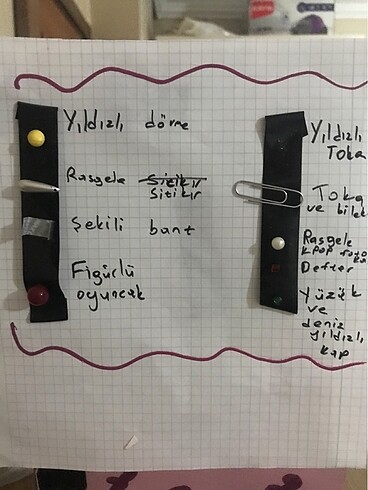 Yıldızlı dövme
Rasgele Sitikır
Sitikır
Şekili bant
Figürlü
oyuncak
Yıldızlı
Toka
Toka
ve bilek
Rasgele
kpop
Defter
Yüzük
ve
deniz
yıldızlı
kap